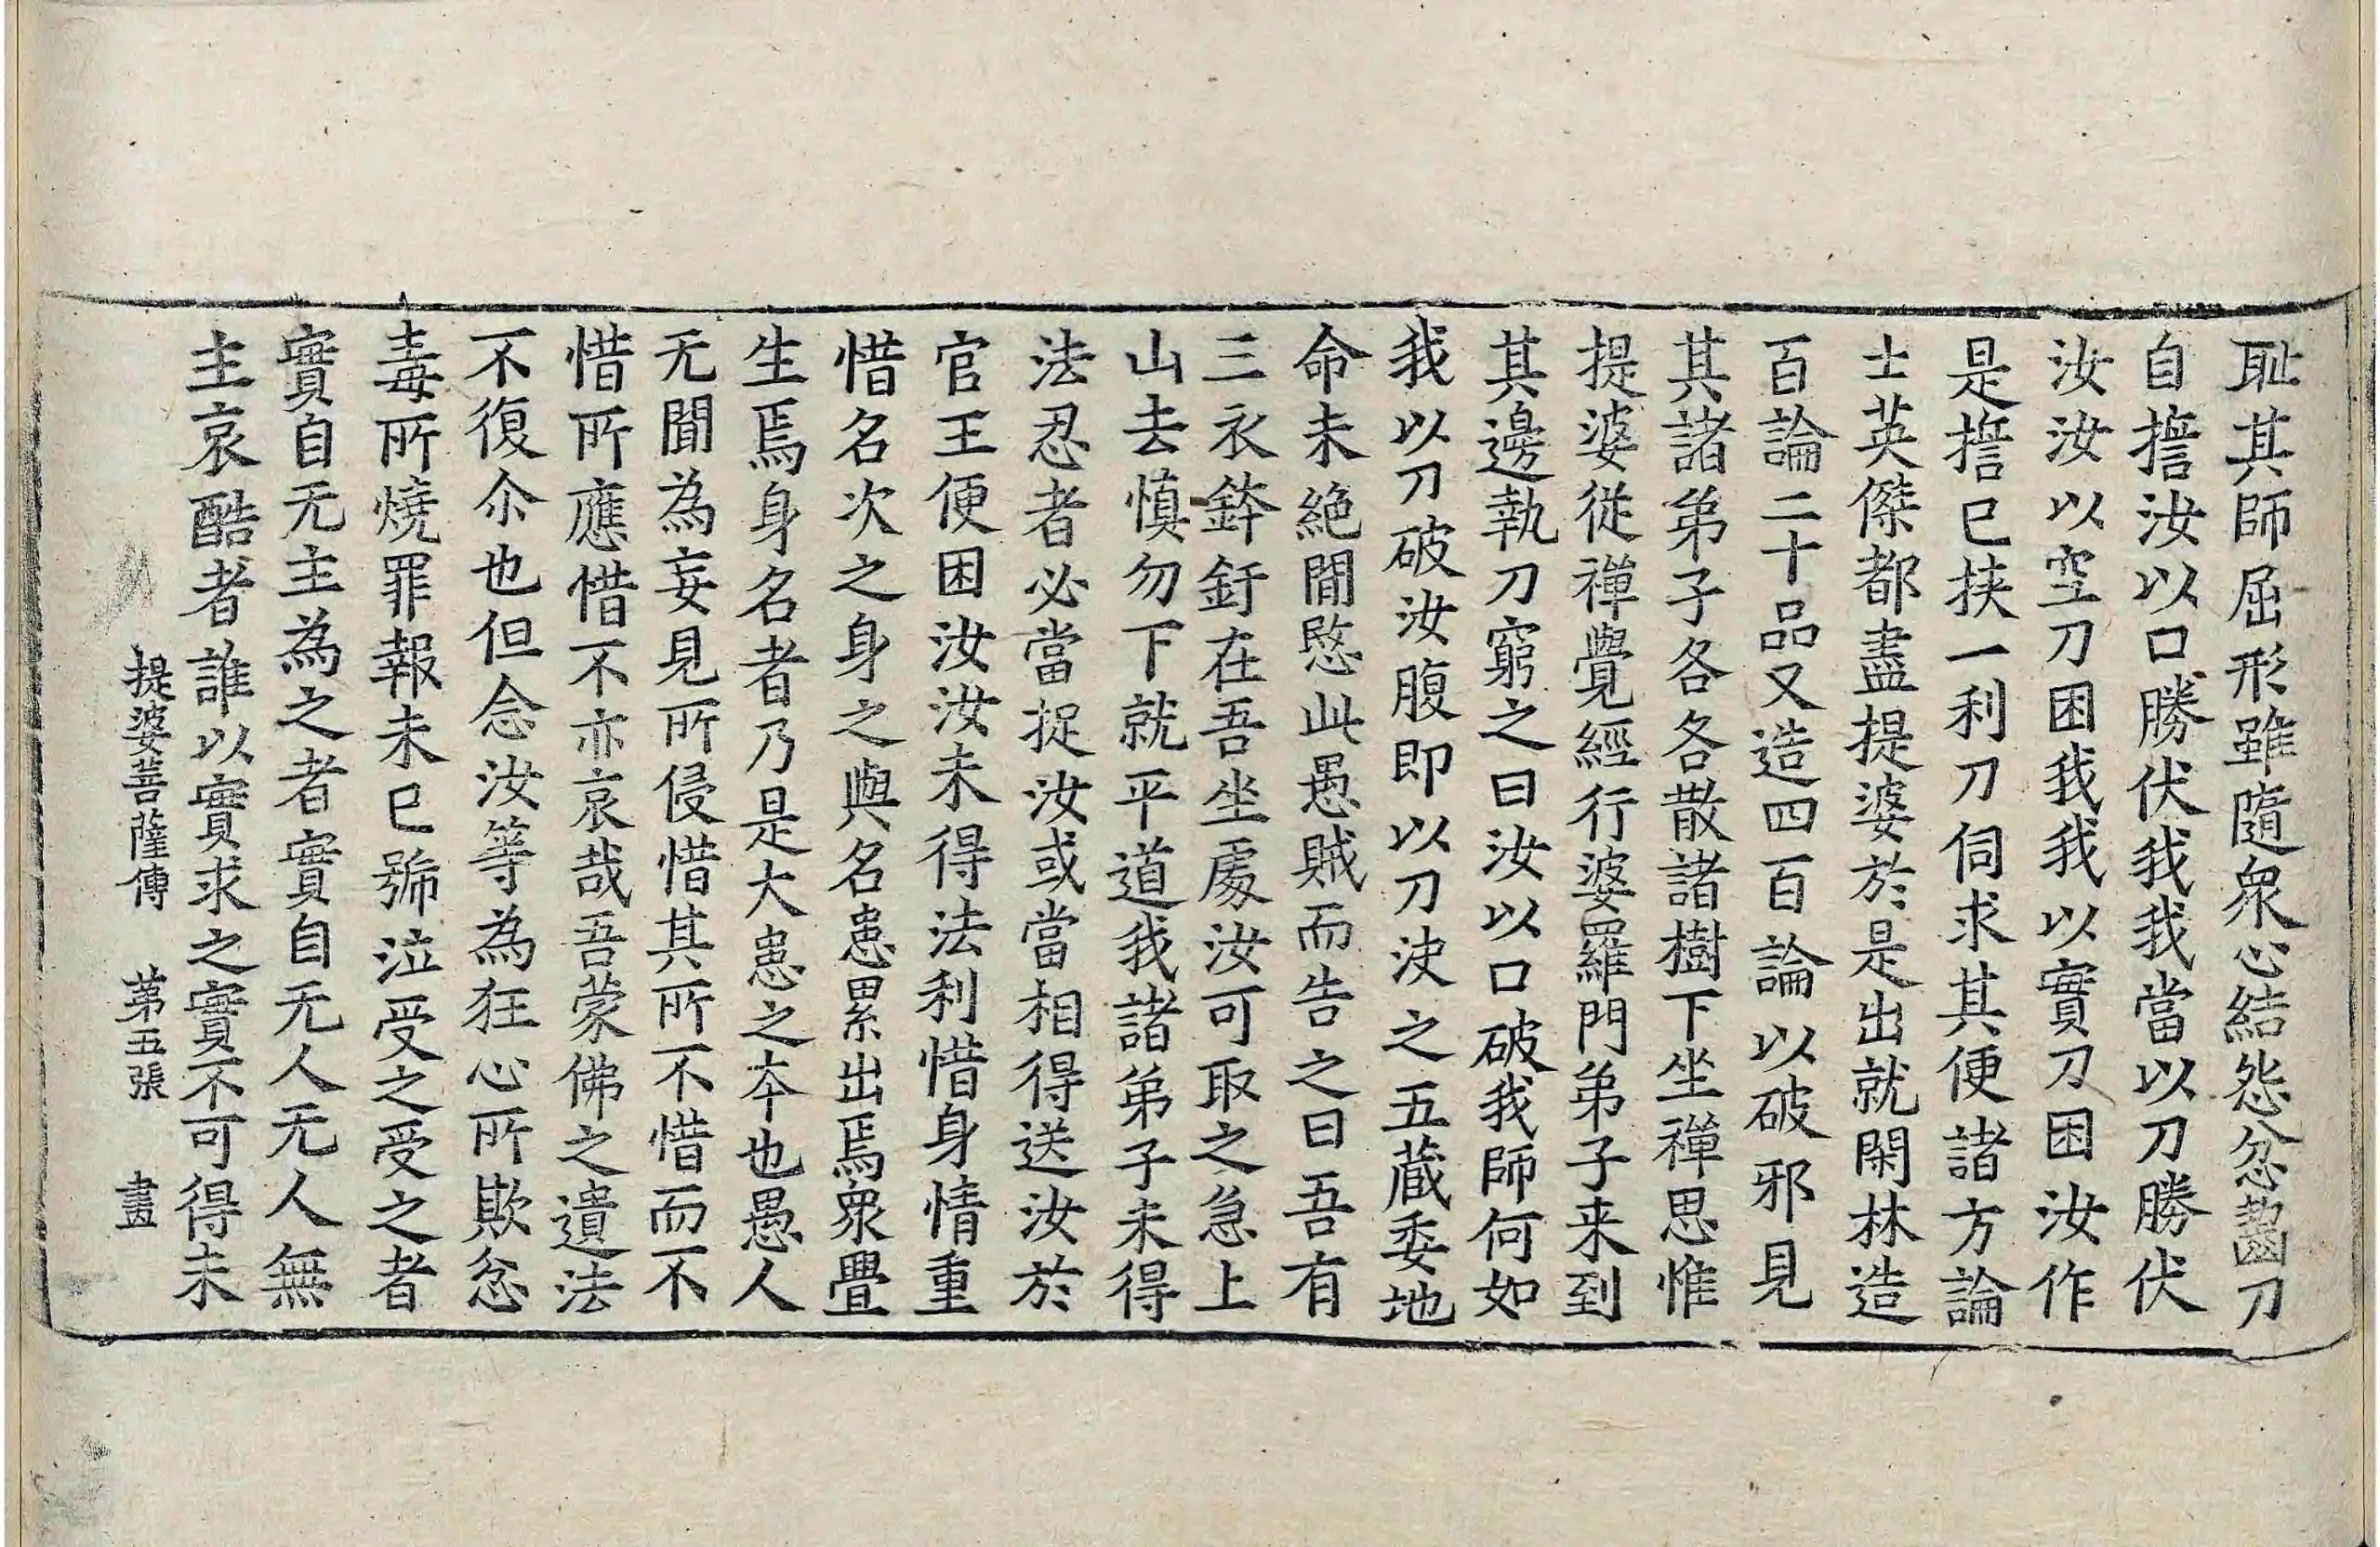 耻其師屈形雖隨衆心結怨忿齧刀
自擔汝以口勝伏我我當以刀勝伏
汝汝以空刀困我我以實刀困汝作
是擔已挾一利刀伺求其便諸方論
士英傑都盡提婆於是出就閑林造
百論二十品又造四百論以破邪見
其諸弟子各各散諸樹下坐禪思惟
提婆從禪覺經行婆羅門弟子来到
其邊執刀窮之曰汝以口破我師何如
我以刀破汝腹即以刀决之五藏委地
命未絶間愍此愚賊而告之曰吾有
三衣鉢釪在吾坐處汝可取之急上
山去慎勿下就平道我諸弟子未得
法忍者必當捉汝或當相得送汝於
官王便困汝汝未得法利惜身情重
惜名次之身之與名患累出焉衆疊
生焉身名者乃是大患之夲也愚人
无聞為妄見所侵惜其所不惜而不
惜所應惜不亦哀哉吾蒙佛之遺法
不復尒也但念汝等為狂心所欺忿
毒所燒罪報未已號泣受之受之者
實自无主為之者實自无人无人無
主哀酷者誰以實求之實不可得未
提婆菩薩傳 第五張 畫